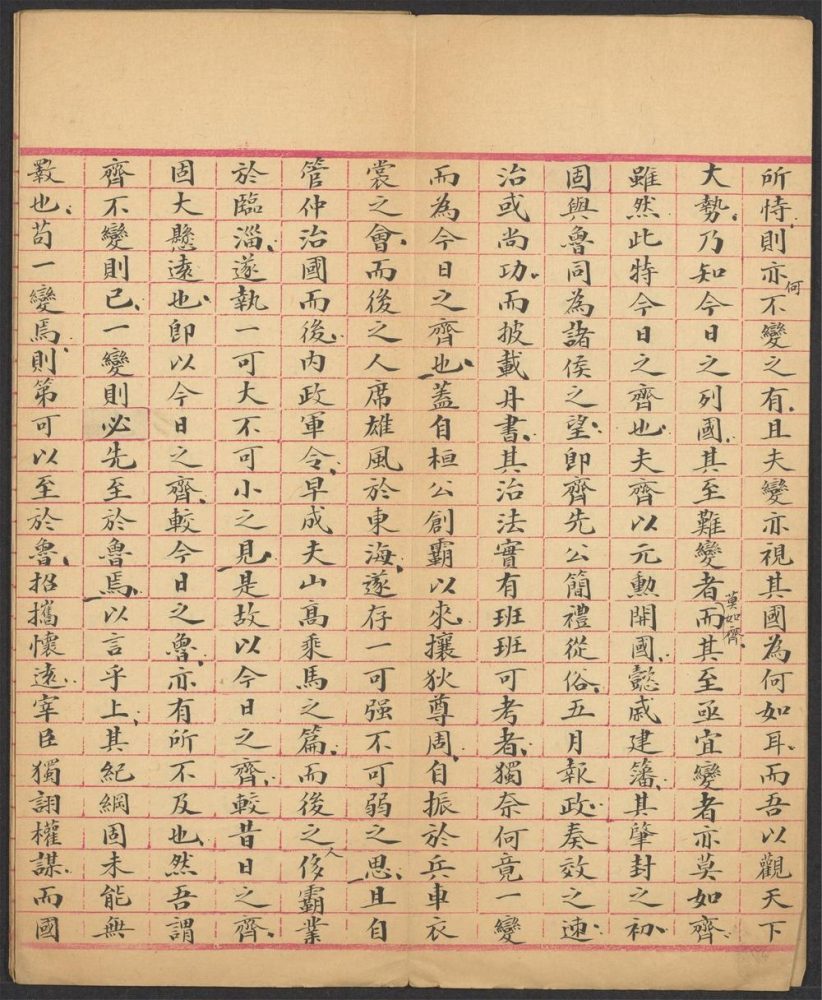 所恃則亦何不變之有且夫變亦視其國為何如耳而吾以觀天下
大勢乃知今日之列國其至難變者莫如齊而其至亟宜變者亦莫如齊
雖然此特今日之齊也夫齊以元勳開國懿戚建籓其肇封之初
固與魯同為諸侯之望即齊先公簡禮從俗五月報政奏效之速
治或尚功而披載丹書其治法實有班班可考者獨奈何竟一變
而為今日之齊也蓋自桓公創霸以來攘狄尊周自振於兵車衣
裳之會而後之人席雄風於東海遂存一可强不可弱之思且自
管仲治國而後內政軍令早成夫山高乘馬之篇而後之人侈霸業
於臨淄遂執一可大不可小之見是故以今日之齊較昔日之齊
固大懸遠也即以今日之齊較今日之魯亦有所不及也然吾謂
齊不變則已一變則必先至於魯焉以言乎上其紀綱固未能無
斁也苟一變焉則第可以至於魯招攜懷遠宰臣獨詡權謀而國